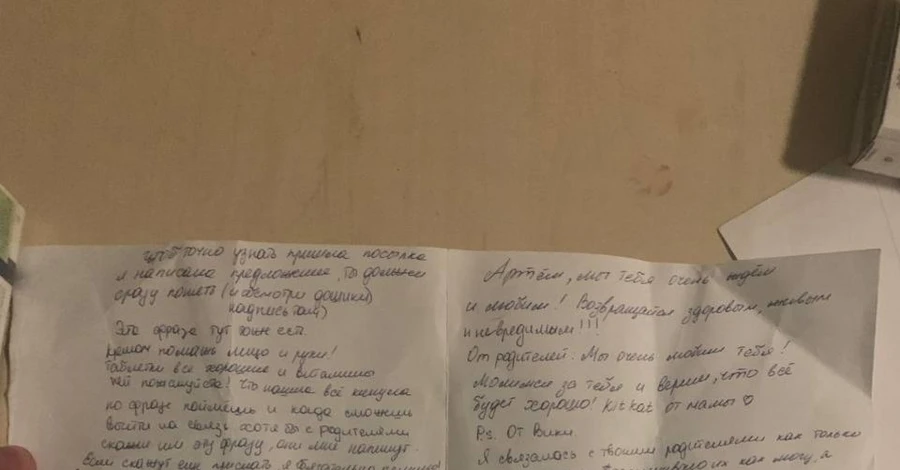 чтоб точно узнать пришла посылка
я написала предложение, ты должен
сразу понять (и осмотри дошики)
надпись там)
Эта фраза тут тоже есть.
мажь лицо и руки!
Таблетки все хорошие и витамины
пей пожалуйста! Что нашла всё
по фразе поймёшь и когда сможешь
выйти на связь хотя бы с родителями
скажи им эту фразу, они мне напишут.
Если скажут еще прислать я обязательно
Артём, мы тебя очень ждём
и любим! Возвращайся здоровым, живым
и невредимым!!!
От родителей: Мы очень любим тебя!
Молимся за тебя и верим, что всё
будет хорошо! Kitkat от мамы ♡
P.s. От Вики.
Я связалась с твоими родителями как только
их как могу, а